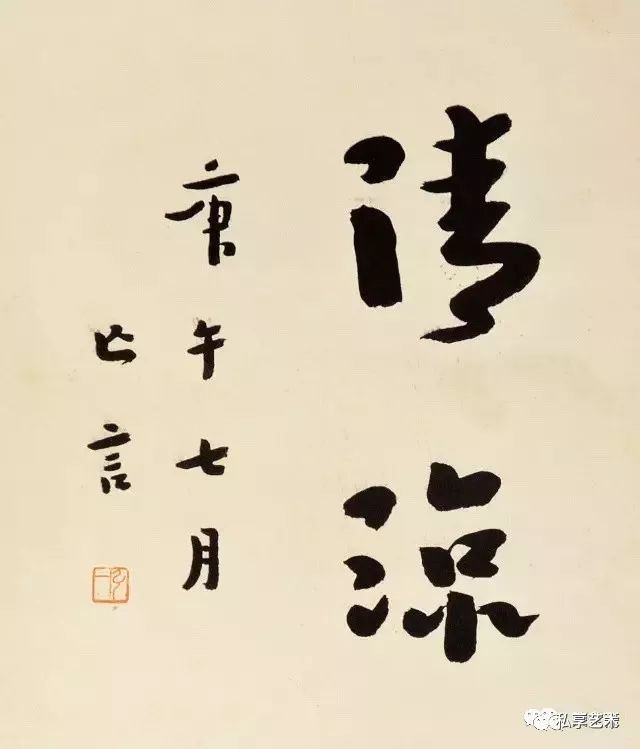 清
涼
庚午七月
亡言
弘一
私享艺术